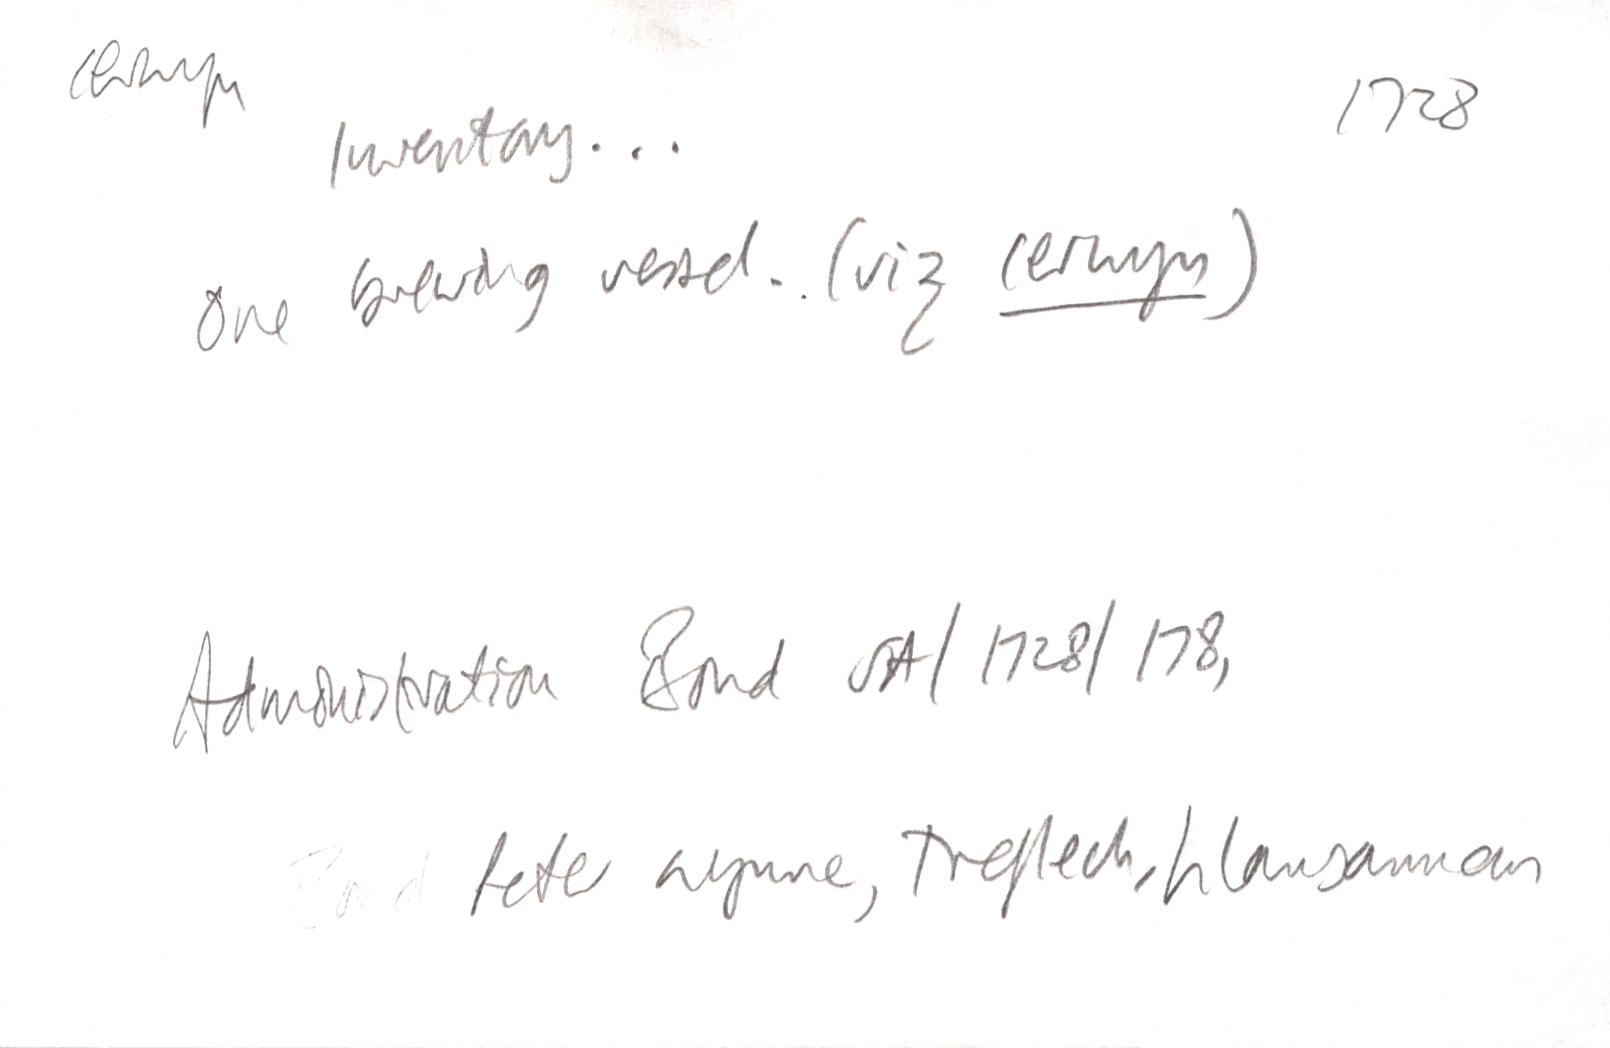 cerwyn
1728
Inventory...
one brewing vessel... (viz cerwyn)
Administration Bond SA/1728/178,
Bond Peter Wynne, Treflech, Llansannan